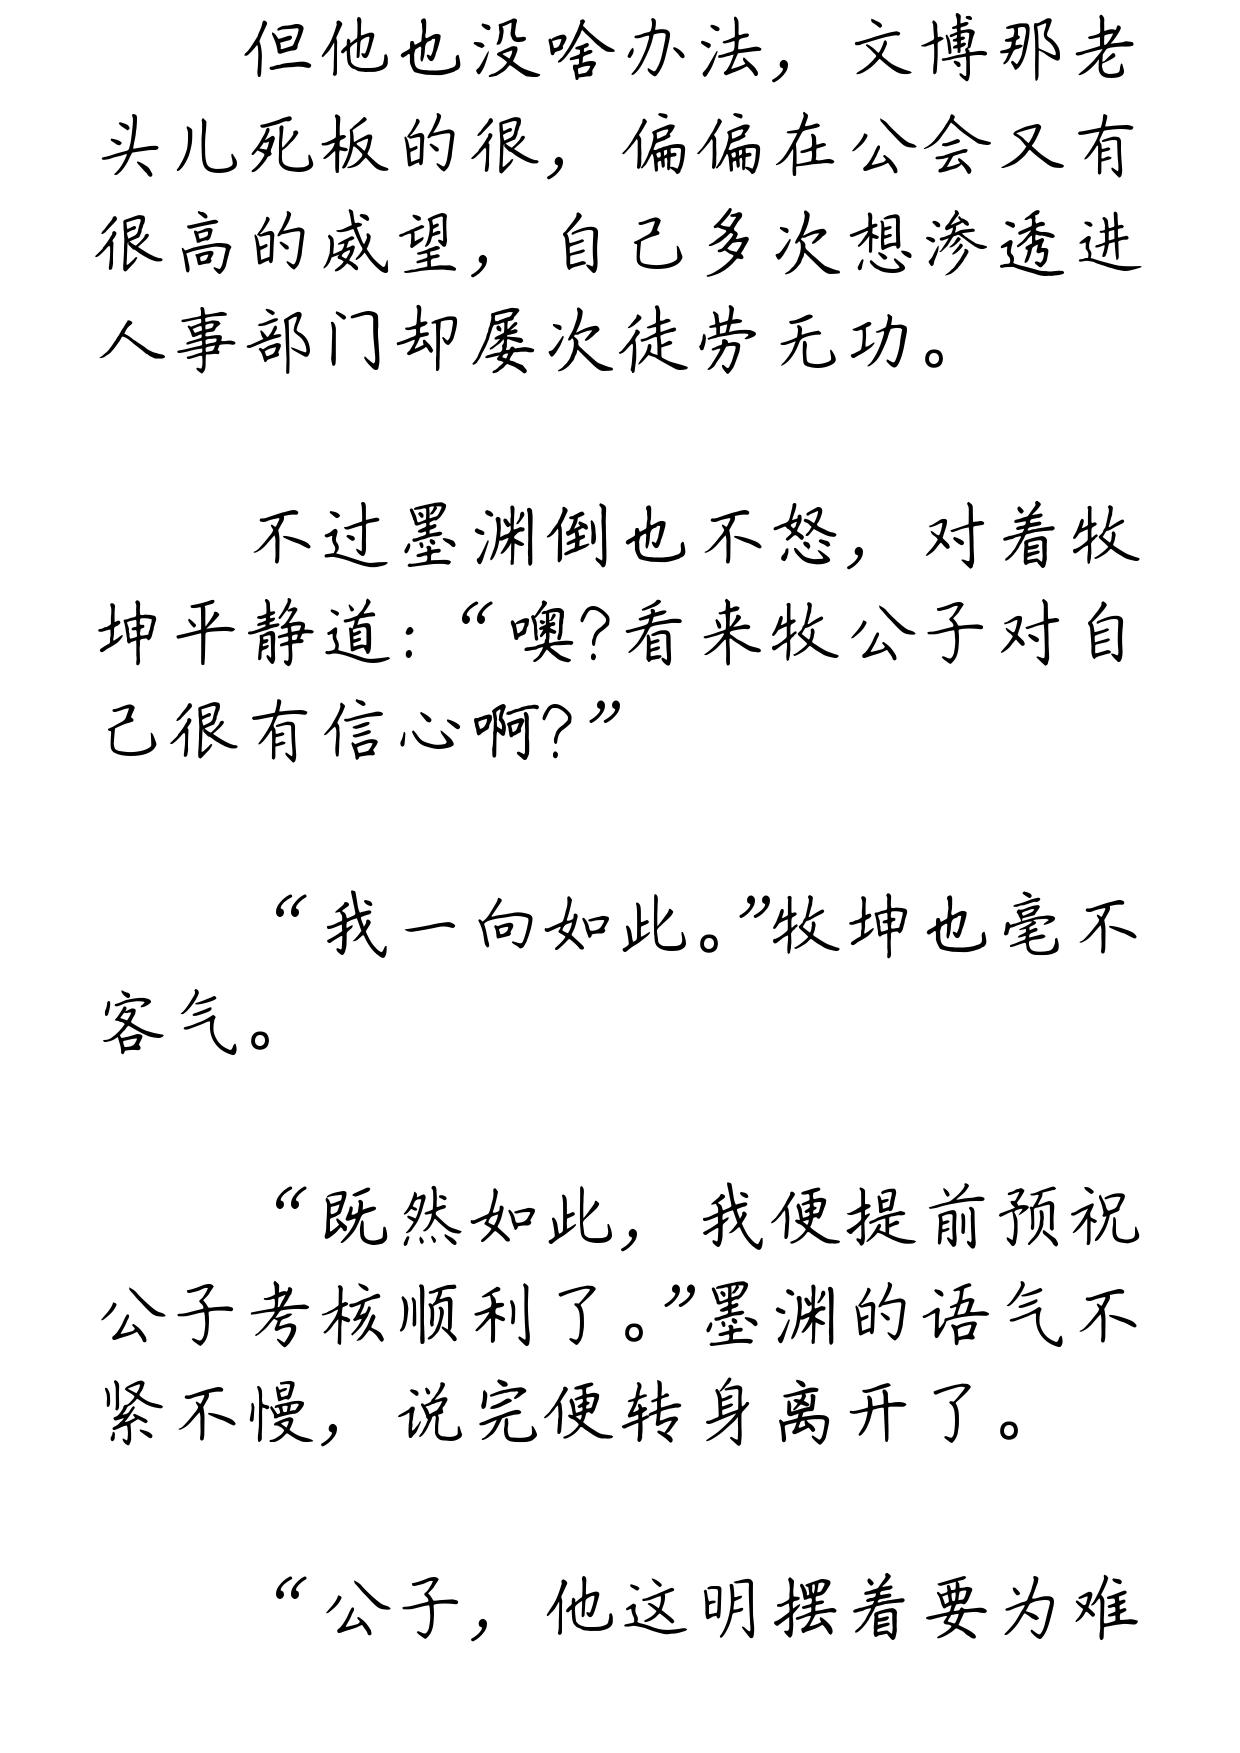 但他也没啥办法，文博那老
头儿死板的很，偏偏在公会又有
很高的威望，自己多次想渗透进
人事部门却屡次徒劳无功。
不过墨渊倒也不怒，对着牧
坤平静道：“噢？看来牧公子对自
己很有信心啊？”
“我一向如此。”牧坤也毫不
客气。
“既然如此，我便提前预祝
公子考核顺利了。”墨渊的语气不
紧不慢，说完便转身离开了。
“公子，他这明摆着要为难